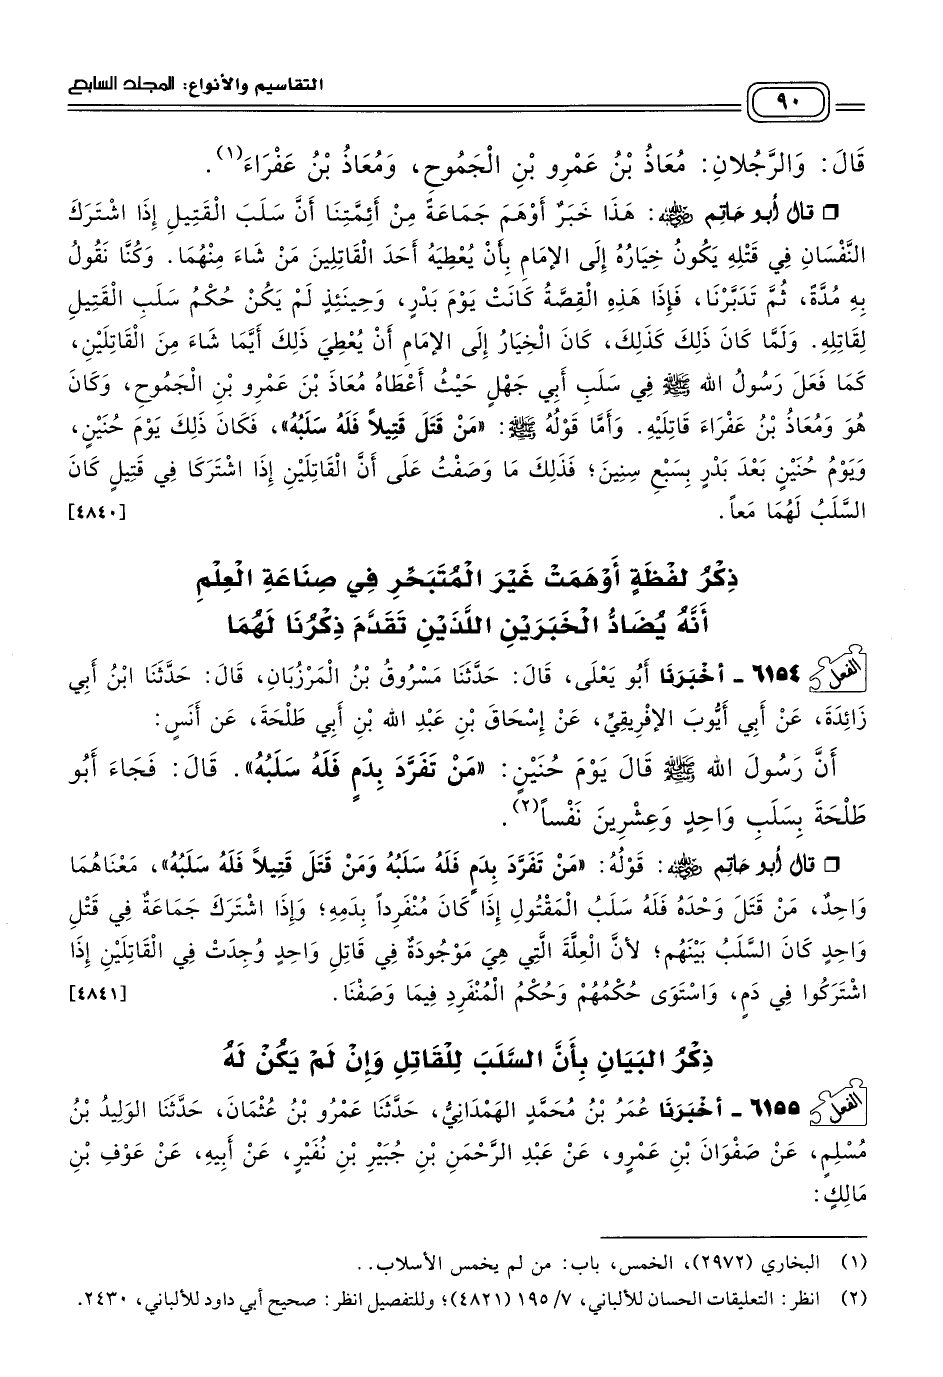 التقاسيم والأنواع: المجلد السابع
٩٠
قَالَ: وَالرَّجُلانِ: مُعَاذُ بْنُ عَمْرِو بْنِ الْجَمُوحِ، وَمُعَاذُ بْنُ عَفْرَاءَ(١).
❒ قال أبو حاتم رضي الله عنه: هَذَا خَبَرٌ أَوْهَمَ جَمَاعَةً مِنْ أَئِمَّتِنَا أَنَّ سَلَبَ الْقَتِيلِ إِذَا اشْتَرَكَ
النَّفْسَانِ فِي قَتْلِهِ يَكُونُ خِيَارُهُ إِلَى الإِمَامِ بِأَنْ يُعْطِيَهُ أَحَدَ الْقَاتِلَينِ مَنْ شَاءَ مِنْهُمَا. وَكُنَّا نَقُولُ
بِهِ مُدَّةً، ثُمَّ تَدَبَّرْنَا، فَإِذَا هَذِهِ الْقِصَّةُ كَانَتْ يَوْمَ بَدْرٍ، وَحِينَئِذٍ لَمْ يَكُنْ حُكْمُ سَلَبِ الْقَتِيلِ
لِقَاتِلِهِ. وَلَمَّا كَانَ ذَلِكَ كَذَلِكَ، كَانَ الْخِيَارُ إِلَى الإِمَامِ أَنْ يُعْطِيَ ذَلِكَ أَيَّمَا شَاءَ مِنَ الْقَاتِلَيْنِ،
كَمَا فَعَلَ رَسُولُ الله ﷺ فِي سَلَبِ أَبِي جَهْلٍ حَيْثُ أَعْطَاهُ مُعَاذَ بْنَ عَمْرِو بْنِ الْجَمُوحِ، وَكَانَ
هُوَ وَمُعَاذُ بْنُ عَفْرَاءَ قَاتِلَيْهِ. وَأَمَّا قَوْلُهُ ﷺ: «مَنْ قَتَلَ قَتِيلاً فَلَهُ سَلَبُهُ»، فَكَانَ ذَلِكَ يَوْمَ حُنَيْنٍ،
وَيَوْمُ حُنَيْنٍ بَعْدَ بَدْرٍ بِسَبْعِ سِنِينَ؛ فَذَلِكَ مَا وَصَفْتُ عَلَى أَنَّ الْقَاتِلَيْنِ إِذَا اشْتَرَكَا فِي قَتِيلٍ كَانَ
السَّلَبُ لَهُمَا مَعاً. [٤٨٤٠]
ذِكْرُ لَفْظَةٍ أَوْهَمَتْ غَيْرَ الْمُتَبَحِّرِ فِي صِنَاعَةِ الْعِلْمِ
أَنَّهُ يُضَادُّ الْخَبَرَيْنِ اللَّذَيْنِ تَقَدَّمَ ذِكْرُنَا لَهُمَا
الفعل ٦١٥٤ - أَخْبَرَنَا أَبُو يَعْلَى، قَالَ: حَدَّثَنَا مَسْرُوقُ بْنُ الْمَرْزُبَانِ، قَالَ: حَدَّثَنَا ابْنُ أَبِي
زَائِدَةَ، عَنْ أَبِي أَيُّوبَ الإِفْرِيقِيِّ، عَنْ إِسْحَاقَ بْنِ عَبْدِ الله بْنِ أَبِي طَلْحَةَ، عَن أَنَسٍ:
أَنَّ رَسُولَ الله ﷺ قَالَ يَوْمَ حُنَيْنٍ: «مَنْ تَفَرَّدَ بِدَمٍ فَلَهُ سَلَبُهُ». قَالَ: فَجَاءَ أَبُو
طَلْحَةَ بِسَلَبِ وَاحِدٍ وَعِشْرِينَ نَفْساً(٢).
❒ قال أبو حاتم رضي الله عنه: قَوْلُهُ: «مَنْ تَفَرَّدَ بِدَمٍ فَلَهُ سَلَبُهُ وَمَنْ قَتَلَ قَتِيلاً فَلَهُ سَلَبُهُ»، مَعْنَاهُمَا
وَاحِدٌ، مَنْ قَتَلَ وَحْدَهُ فَلَهُ سَلَبُ الْمَقْتُولِ إِذَا كَانَ مُنْفَرِداً بِدَمِهِ؛ وَإِذَا اشْتَرَكَ جَمَاعَةٌ فِي قَتْلِ
وَاحِدٍ كَانَ السَّلَبُ بَيْنَهُم؛ لأنَّ الْعِلَّةَ الَّتِي هِيَ مَوْجُودَةٌ فِي قَاتِلٍ وَاحِدٍ وُجِدَتْ فِي الْقَاتِلَيْنِ إِذَا
اشْتَرَكُوا فِي دَمٍ، وَاسْتَوَى حُكْمُهُمْ وَحُكْمُ الْمُنْفَرِدِ فِيمَا وَصَفْنَا. [٤٨٤١]
ذِكْرُ البَيَانِ بِأَنَّ السَّلَبَ لِلْقَاتِلِ وَإِنْ لَمْ يَكُنْ لَهُ
الفعل ٦١٥٥ - أَخْبَرَنَا عُمَرُ بْنُ مُحَمَّدٍ الهَمْدَانِيُّ، حَدَّثَنَا عَمْرُو بْنُ عُثْمَانَ، حَدَّثَنَا الوَلِيدُ بْنُ
مُسْلِمٍ، عَنْ صَفْوَانَ بْنِ عَمْرٍو، عَنْ عَبْدِ الرَّحْمَنِ بْنِ جُبَيْرِ بْنِ نُفَيْرٍ، عَنْ أَبِيهِ، عَنْ عَوْفِ بْنِ
مَالِكٍ:
(١) البخاري (٢٩٧٢)، الخمس، باب: من لم يخمس الأسلاب..
(٢) انظر: التعليقات الحسان للألباني، ٧/ ١٩٥ (٤٨٢١)؛ وللتفصيل انظر: صحيح أبي داود للألباني، ٢٤٣٠.